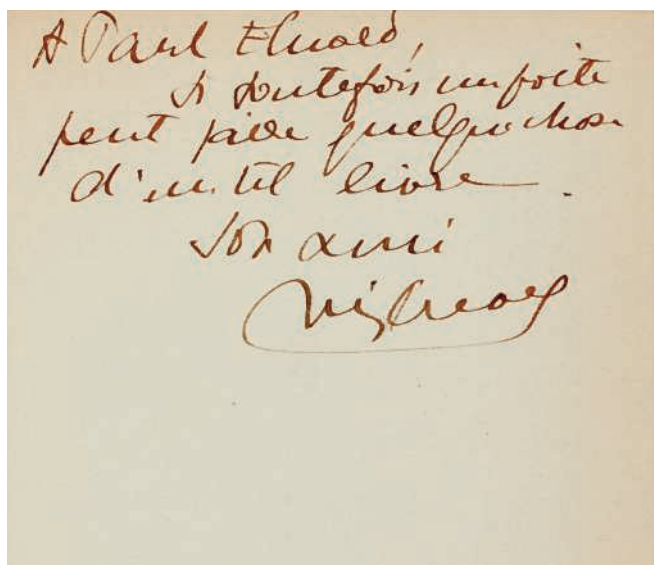 A Paul Eluard,
si toutefois un poète
peut faire quelque chose
d'un tel livre.
Son ami